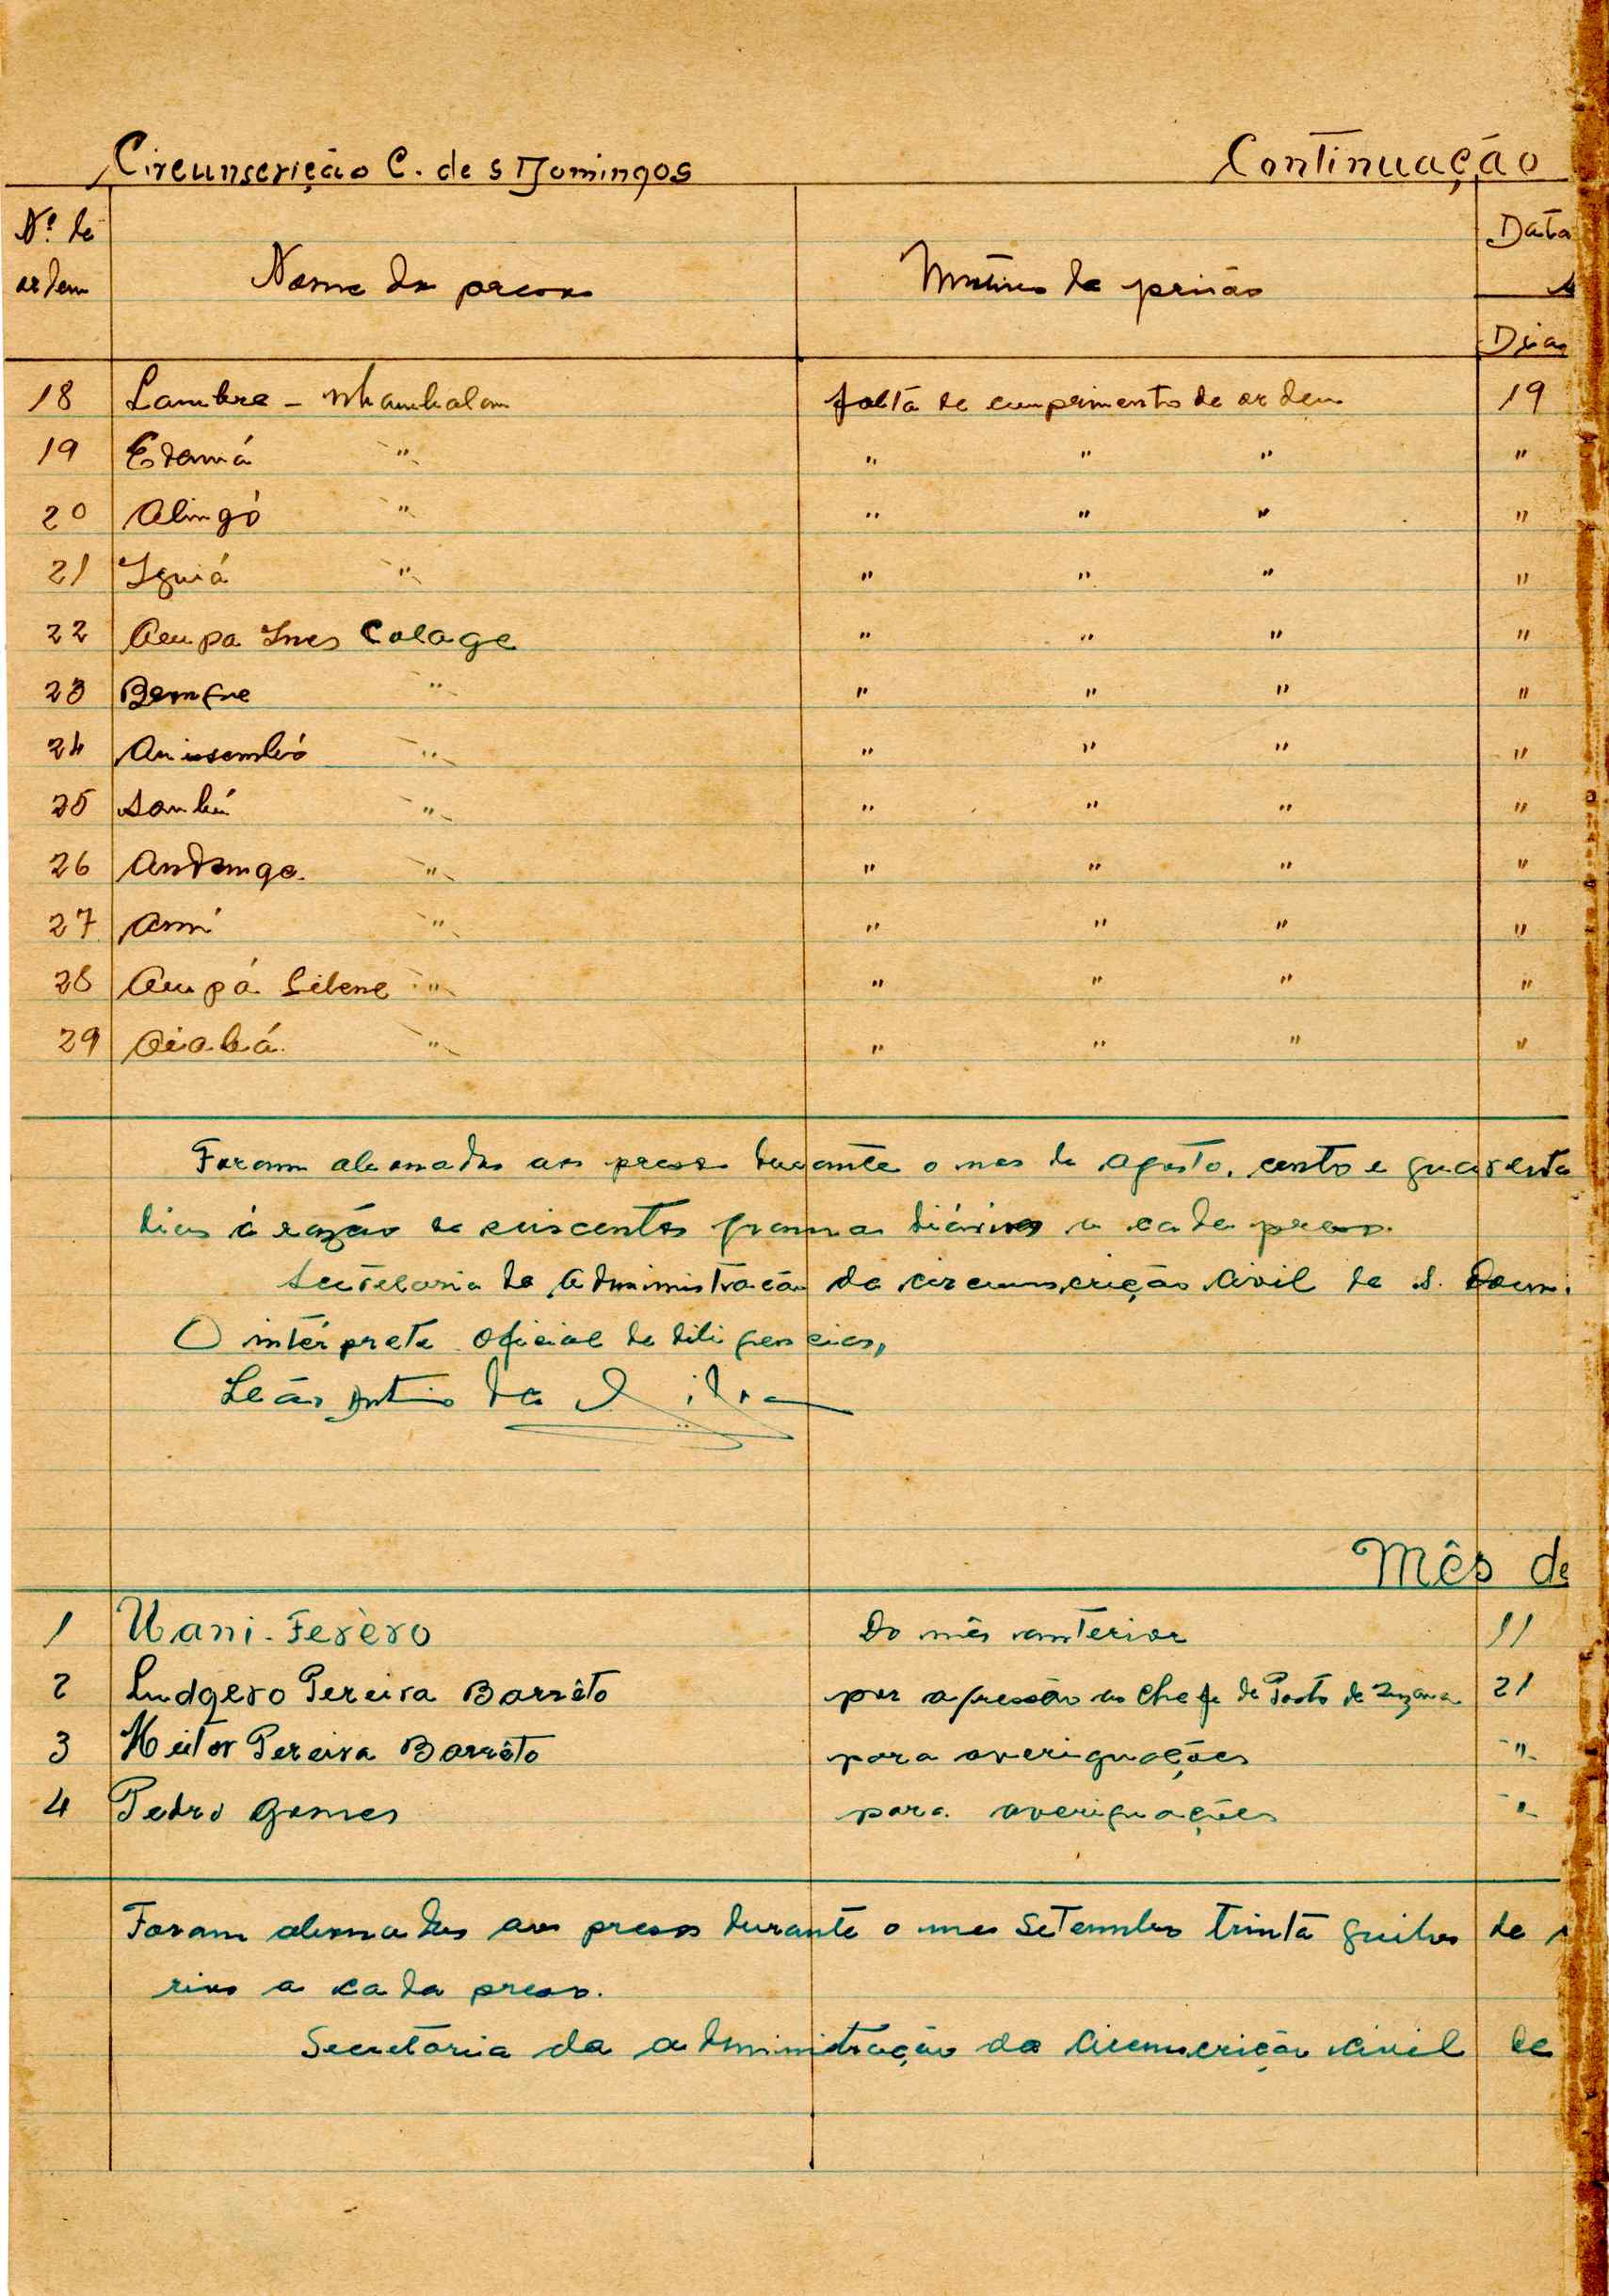 Circunscrição C. de S Domingos Continuação
Nº de ordem Nome do preso Motivo da prisão Data
Dias
18 Lambre - falta de cumprimento de ordem 19
19 Edamá " " " " "
20 Alingó " " " " "
21 Iguiá " " " " "
22 Aupa Ines Colage " " " "
23 " " " " "
24 " " " " "
25 Sambú " " " " "
26 " " " " "
27 " " " " "
28 Aupá Silene " " " " "
29 " " " " "
Foram abonados aos presos durante o mes de Agosto, cento e quarenta
dias à razão de seiscentos gramas diários a cada preso.
Secretaria da Administração da circunscrição Civil de S. Dom.
O intérprete oficial de diligencias,
Leão António da Silva
Mês de
1 Uani-Ferèro Do mês anterior 11
2 Ludgero Pereira Barrêto por agressão ao Chefe de Posto de 21
3 Heitor Pereira Barrêto para averiguações "
4 Pedro Gomes para averiguações "
Foram abonados aos presos durante o mes Setembro trinta quilos de
rios a cada preso.
Secretaria da administração da Circunscrição Civil de